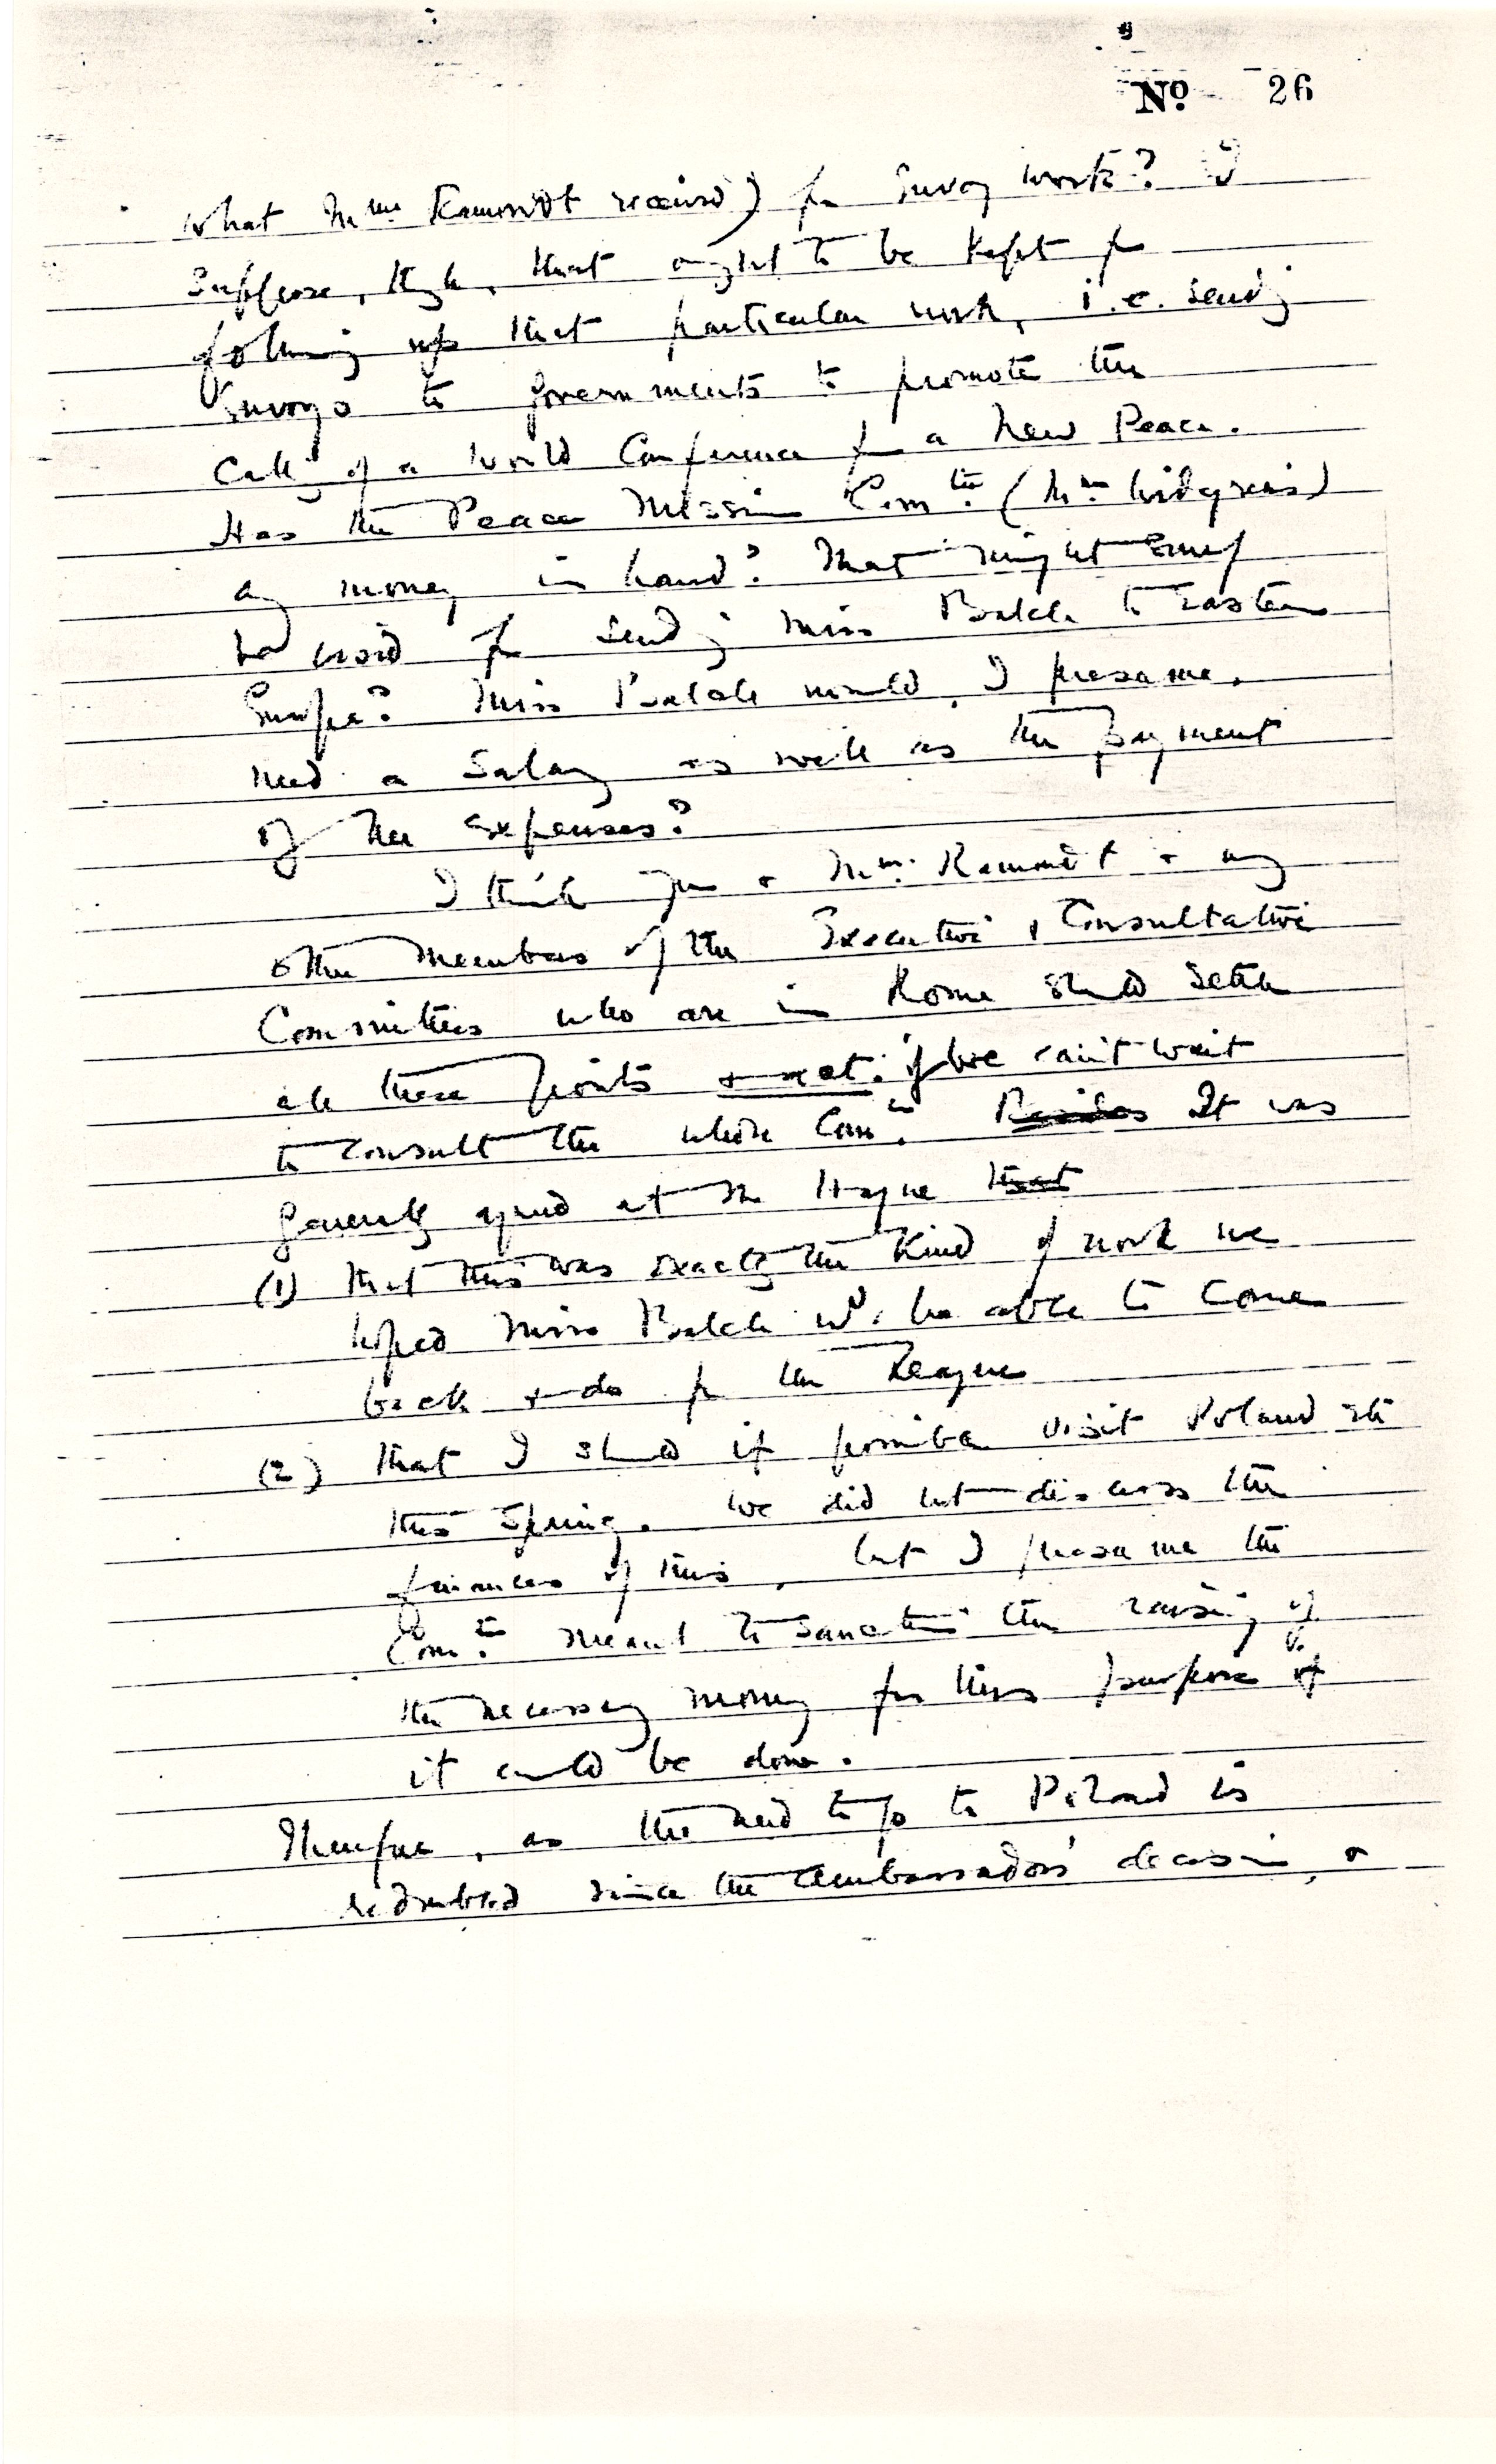 No 26
What Mme Ramondt received) for Envoy work? I
suppose, tho', that ought to be kept for
following up that particular work, i.e. sending
Envoys to Governments to promote the
calling of a World Conference for a New Peace.
Has the Peace Mission Comtee (Mme
any money in hand? That might
used for sending Miss Balch to Eastern
Europe? Miss Balch would, I presume,
need a salary as well as the payment
of her expenses?
I think you & Mme Ramondt & any
other members of the Executive & Consultative
Committees who are in Rome should settle
all these points & act. if we can't wait
to consult the whole Comtee. Besides It was
generally agreed at the Hague that
(1) that this was exactly the kind of work we
hoped Miss Balch wd. be able to come
back & do for the League
(2) that I should if possible visit Poland etc
this Spring. We did not discuss the
finances of this, but I presume the
Comtee meant to sanction the raising of
the necessary money for this purpose if
it could be done.
Therefore, as the need to go to Poland is
redoubled since the Ambassadors' decision, &